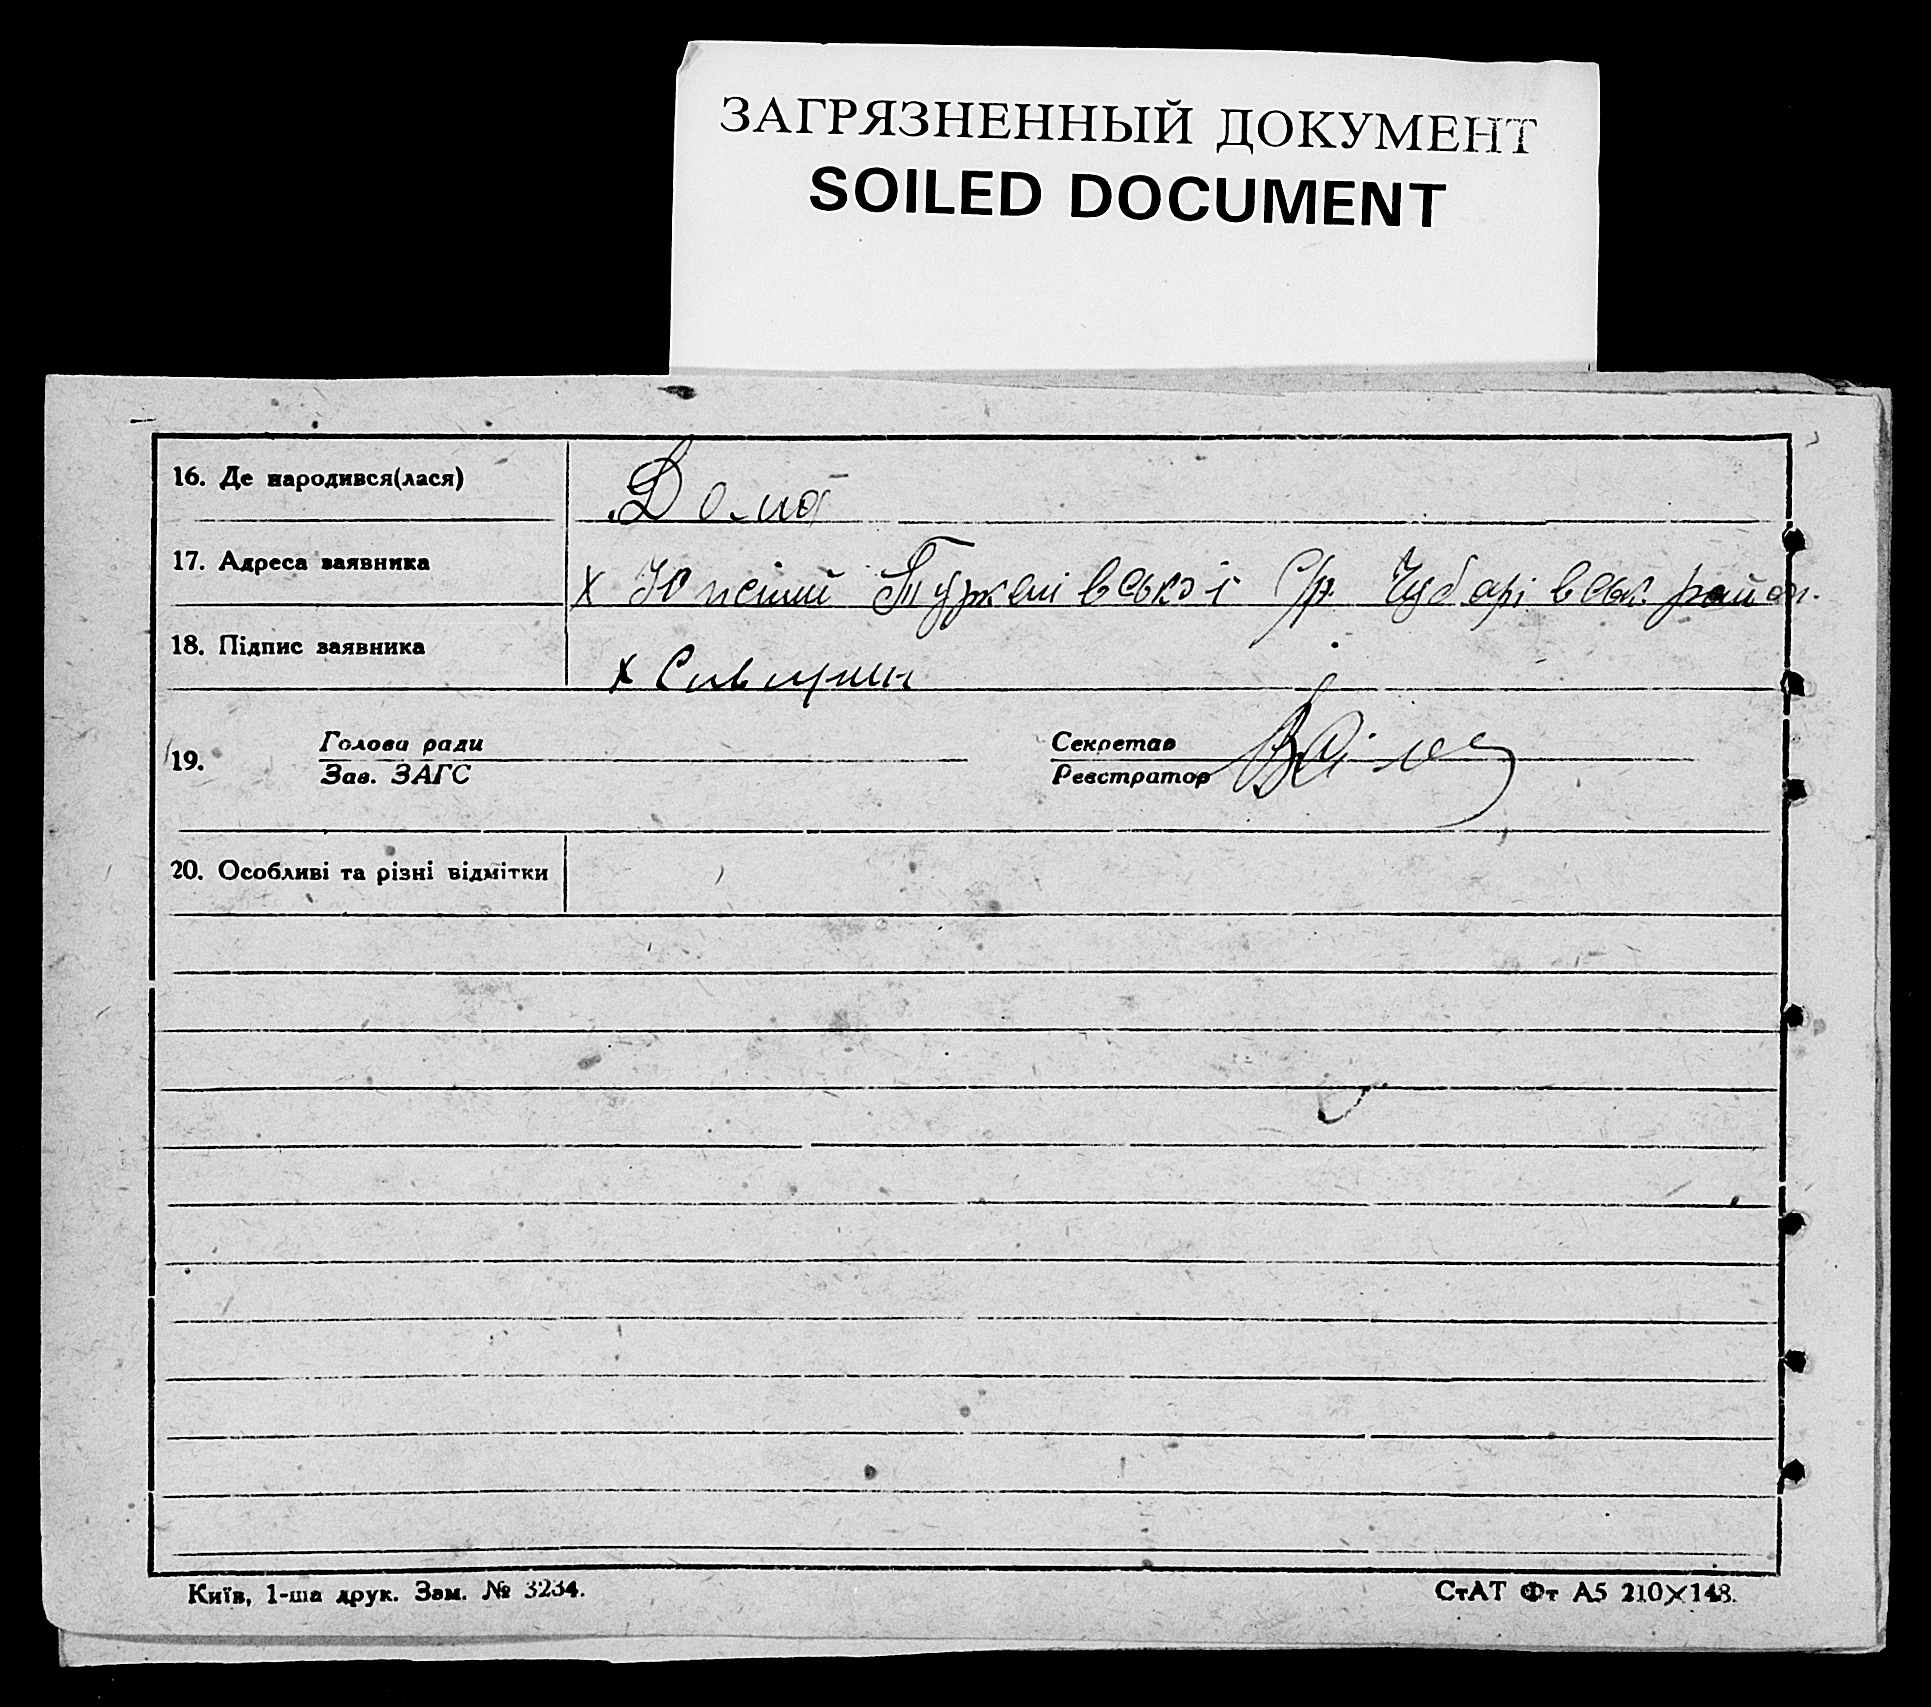 ЗАГРЯЗНЕННЫЙ ДОКУМЕНТ
SOILED DOCUMENT
16. Де народився(лася) Дома
17. Адреса заявника х Туркенівської С/р. Чубарівськ. район.
18. Підпис заявника х
19. Голова ради Секретар
Зав. ЗАГС Реєстратор
20. Особливі та різні відмітки
Київ, 1-ша друк. Зам. № 3234. СтАТ Фт А5 210×148.